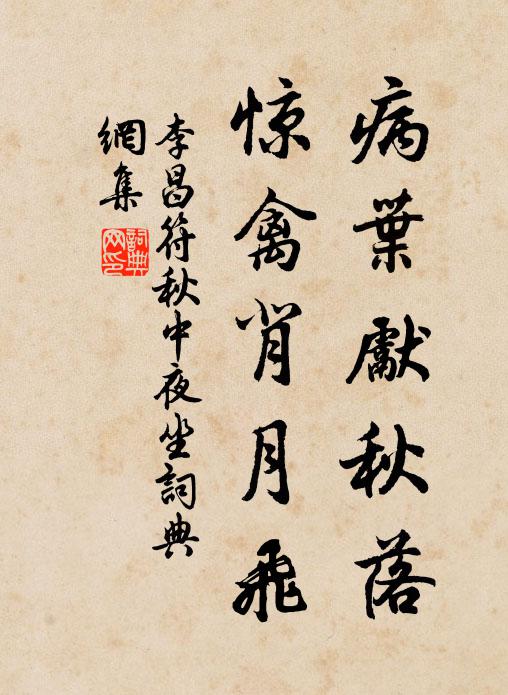 病葉獻秋落
惊禽背月飛
李昌符秋中夜坐詞典
網集
詞典
网印